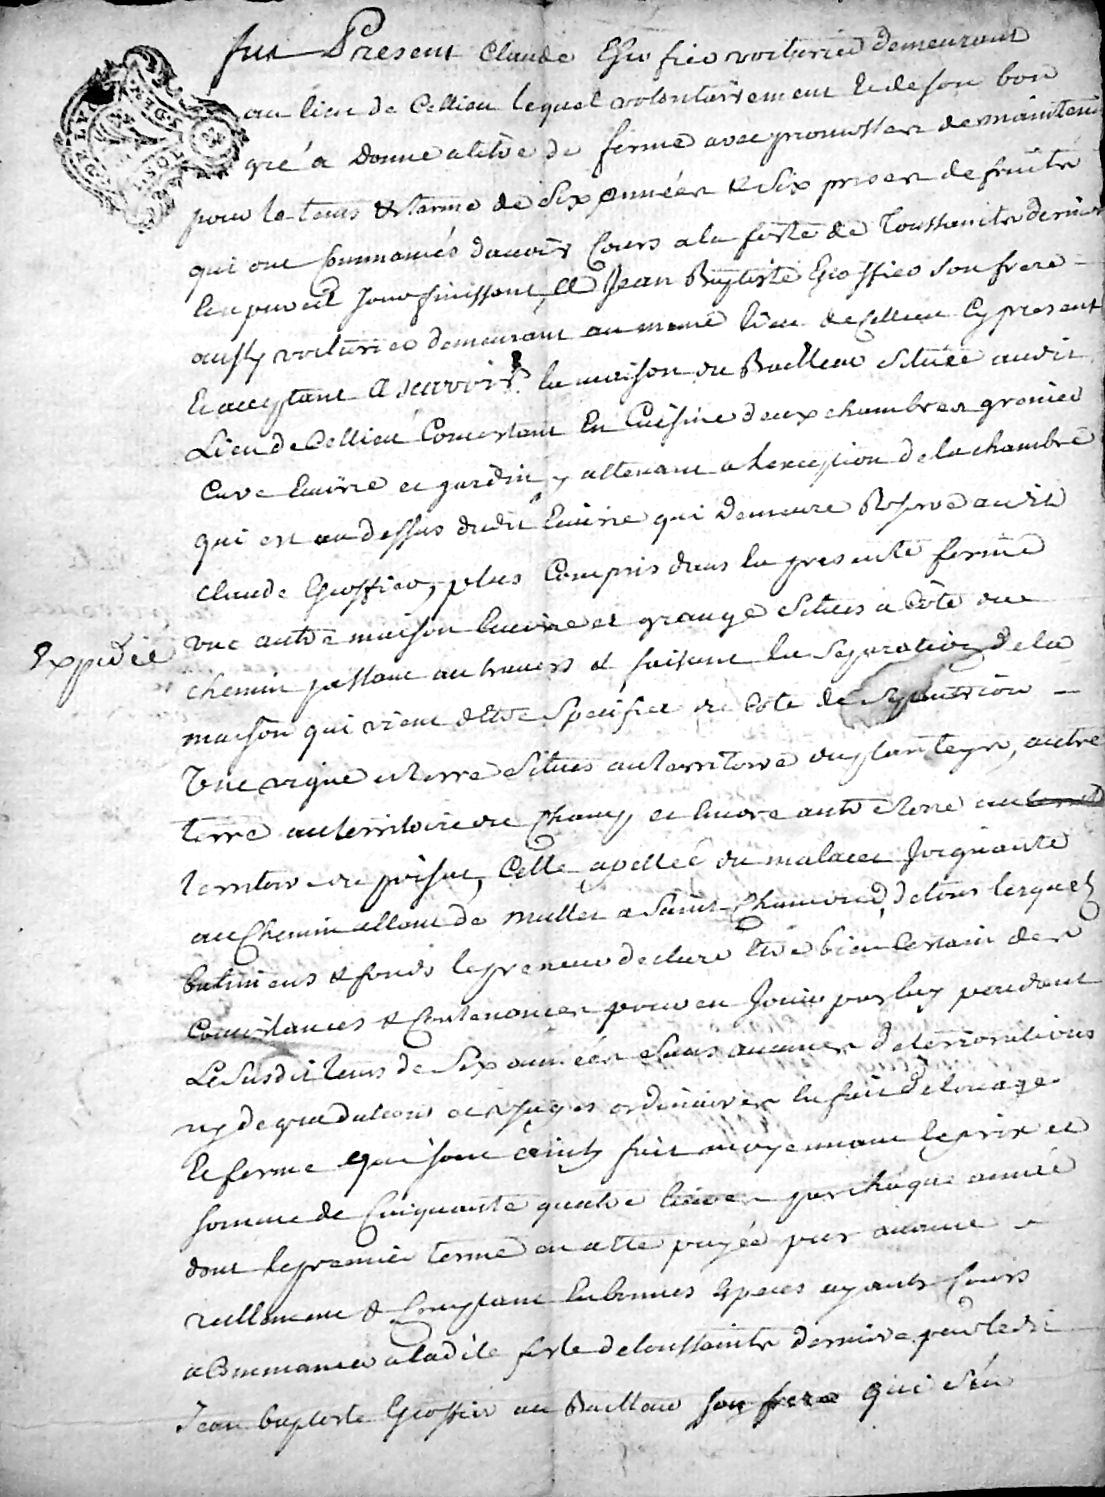 fut Present Claude voiturier demeurant
au lieu de Cellieu lequel volontairement Et de son bon
gré a donné a titre de ferme avec promesses de maintenir
pour le tems & terme de Six années & Six prises de fruits
qui ont Commancés davoir Cours a la feste de Toussaints dernier
Et a pareil Jour finissant, A Jean Baptiste Gioffier Son frere
aussy voiturier demeurant au meme lieu de Cellieu Cy present
Et acceptant A scavoir la maison du Bailleur Située audit
Lieu de Cellieu Concistant En Cuisine deux chambres grenier
Cave Ecurie et jardin y attenant a lexception de la chambre
qui est au dessus dudit Ecurie qui demeure Reservé audit
Claude Gioffier, plus Compris dans la presente ferme
une autre maison Ecurie et grange Situés a Côté du
Expedié
chemin passant au travers & faisant la Separation de la
maison qui vient dEtre Specifiée du Côté de Septentrion
Une vigne et terre Situés au territoire du, autre
terre au territoire du Champ et Encore autre terre au
territoire du, Celle apellée du malacer Joignante
au Chemin allant de a Saint Chamond, de tous lesquels
batimens & fonds le preneur declare Etre bien Certain des
Concistances & Contenances pour en Jouir par luy pendant
Le Susdit tems de Six années Sans aucunes deteriorations
ny degradations et usages ordinaires En fait de louage
Et ferme qui sont ainsy fait moyennant le prix et
Somme de Cinquante quatre livres par chaque année
dont le premier terme en a été payée par avance
reellement & Comptant En bonnes Especes ayants Cours
a Commancer a ladite feste de toussaints derniere par ledit
Jean baptiste Gioffier au Bailleur son frere qui s'en